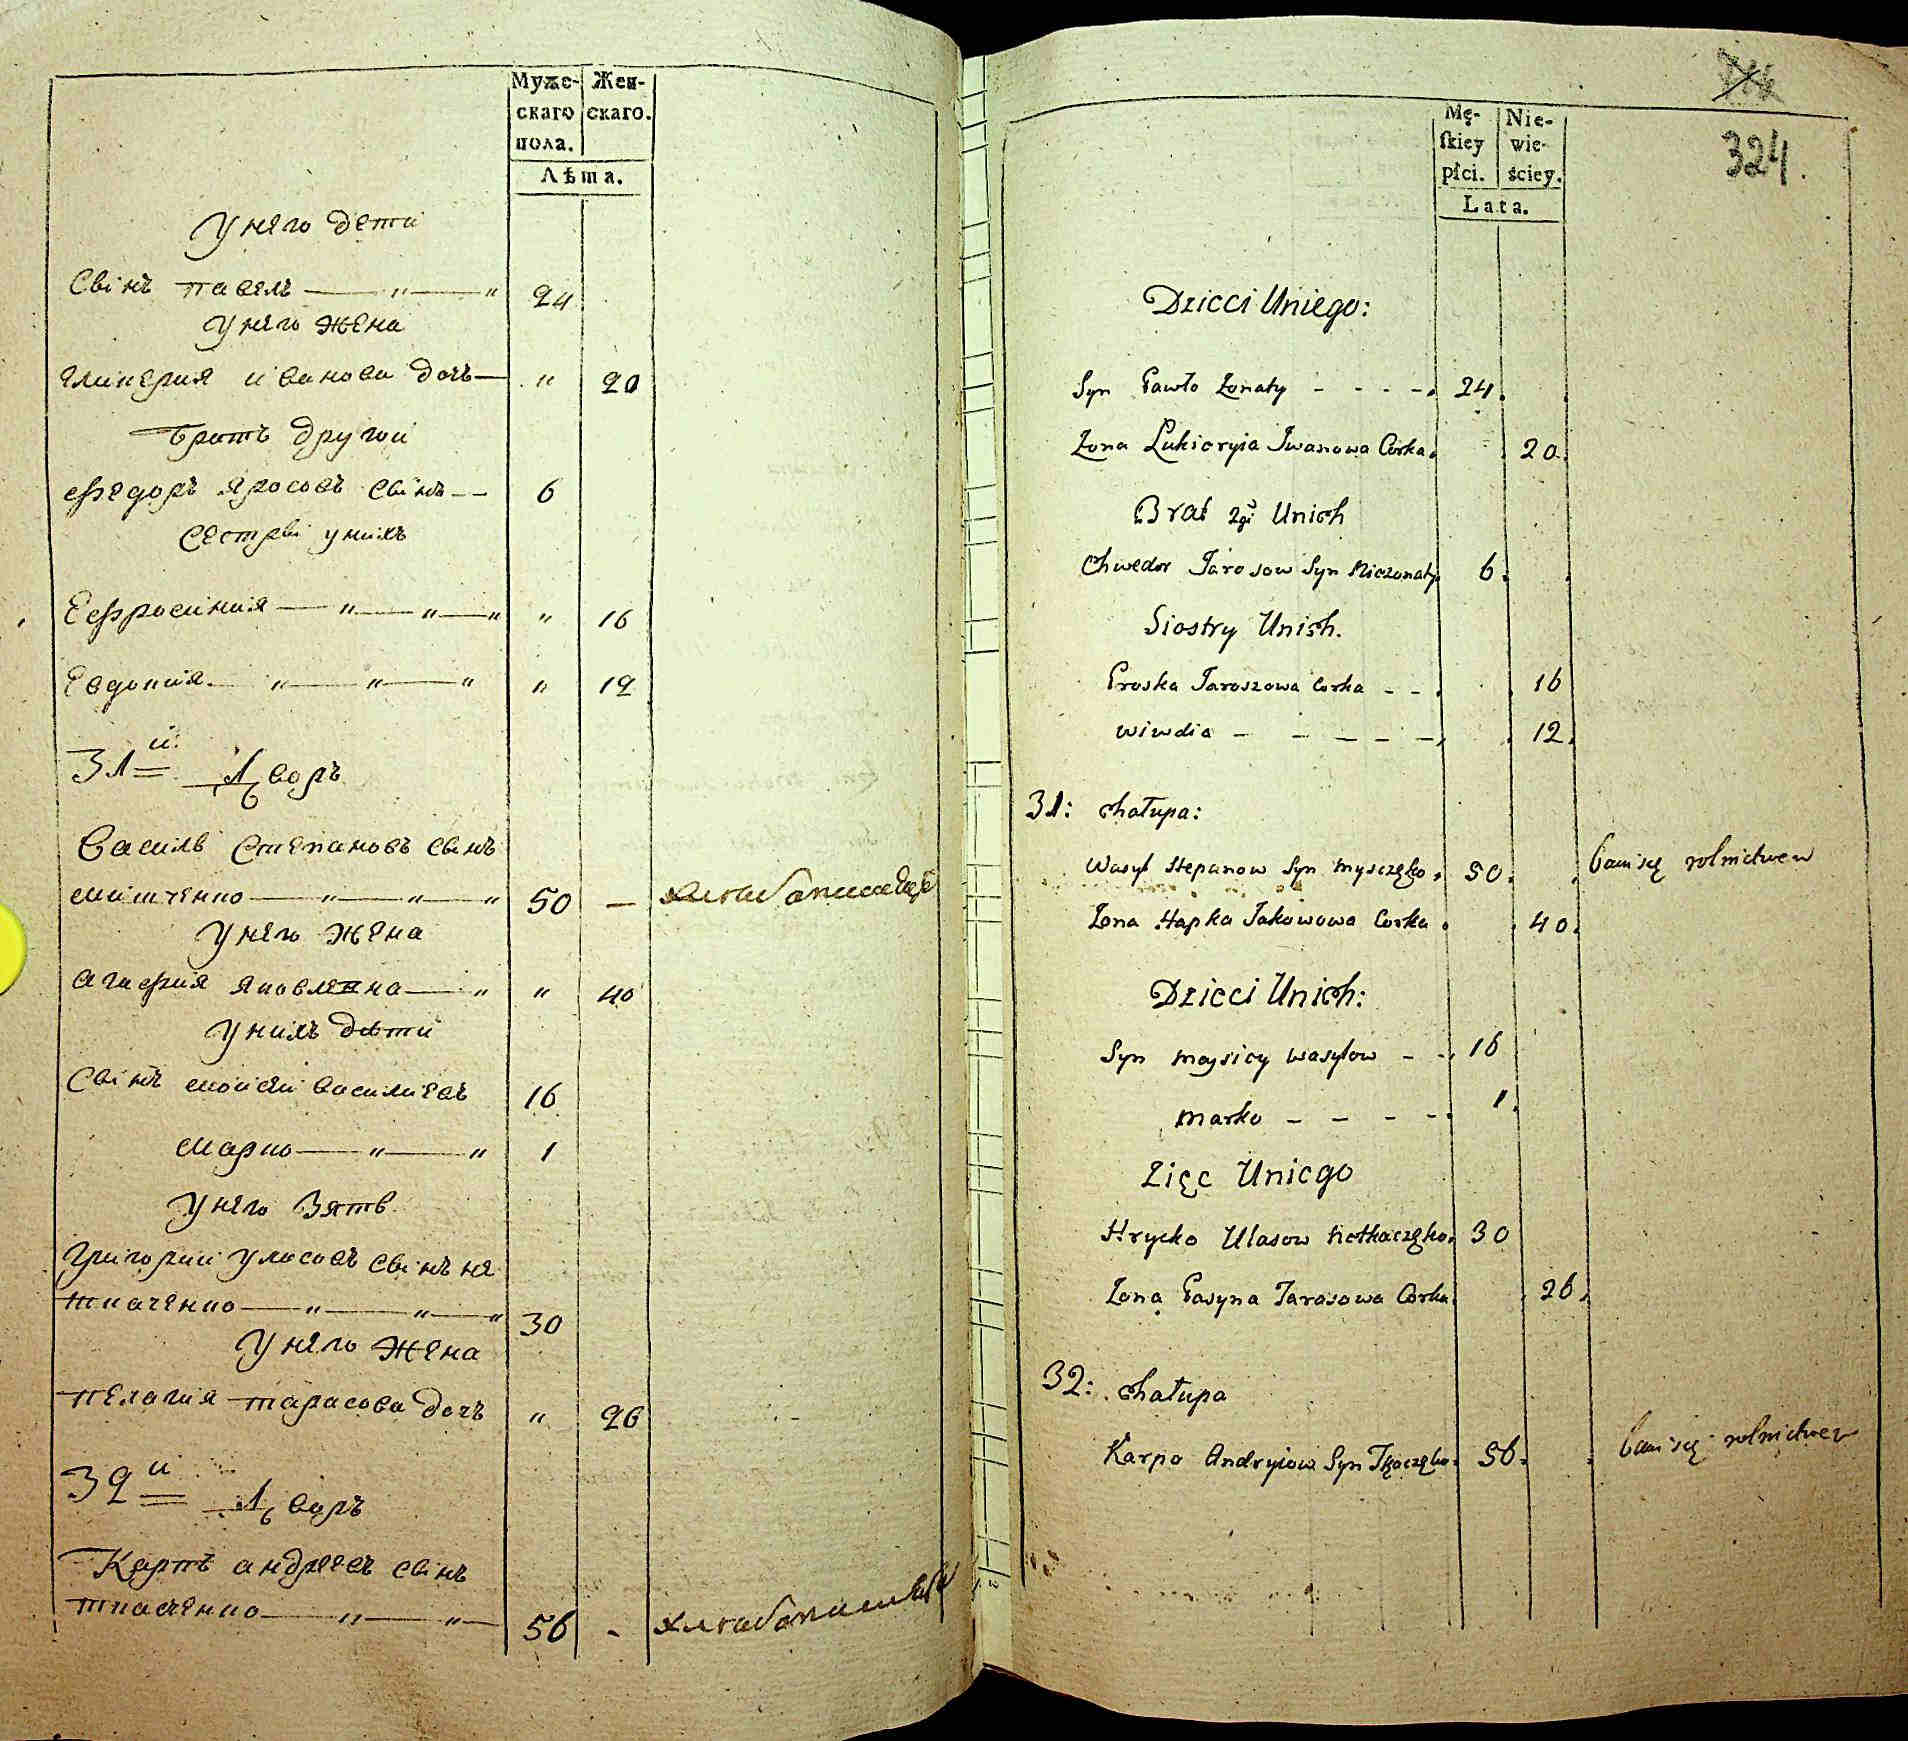 Муже-
скаго
пола.
Жен-
скаго.
Лѣта.
У него дети
Свiнъ павелъ — „ — „ 24
У него жена
гликерия иванова дочь — „ 20
братъ другои
Федоръ яросовъ свiнъ — — 6
Сестрвi унихъ
Ефросиния — „ — „ — „ „ 16
Евдокия — „ — „ — „ „ 12
31й Дворъ
Василь Степановъ свiнъ
мiшченко — „ — „ — „ 50 — хлебопашецъ
У него жена
агафия яковлевна — „ „ 40
У нихъ дѣти
Свiнъ моисеи василиевъ 16
марко — „ — „ 1
У него Зять
Григории уласовъ свiнъ не
ткаченко — „ — „ — „ 30
У него жена
пелагия тарасова дочъ „ 26
32й Дворъ
Карпъ андреевъ свiнъ
ткаченко — „ — „ — 56 - хлебопашецъ
324.
Mę-
skiey
płci.
Nie-
wie-
ściey.
Lata.
Dzieci Uniego:
Syn Pawło Żonaty - - - - . 24.
Żona Lukieryia Iwanowa Corka. 20.
Brat 2gi Unich
Chwedor Jarosow Syn Nieżonaty 6.
Siostry Unich.
Proska Jaroszowa Corka - - . 16
Wiwdia - - - - - 12.
31: chałupa:
Wasyl Stepanow Syn Myszczęko. 50. bawi się rolnictwem
Żona Hapka Jakowowa Corka . 40.
Dzieci Unich:
Syn Moysiey Wasylow - - . 16
Marko - - - - . 1.
Zięc Uniego
Hrycko Ulasow Netkaczęko. 30
Żona Pasyna Tarasowa Corka. 26.
32: chałupa
Karpo Andryiow Syn Tkaczęko. 56. bawi się rolnictwem